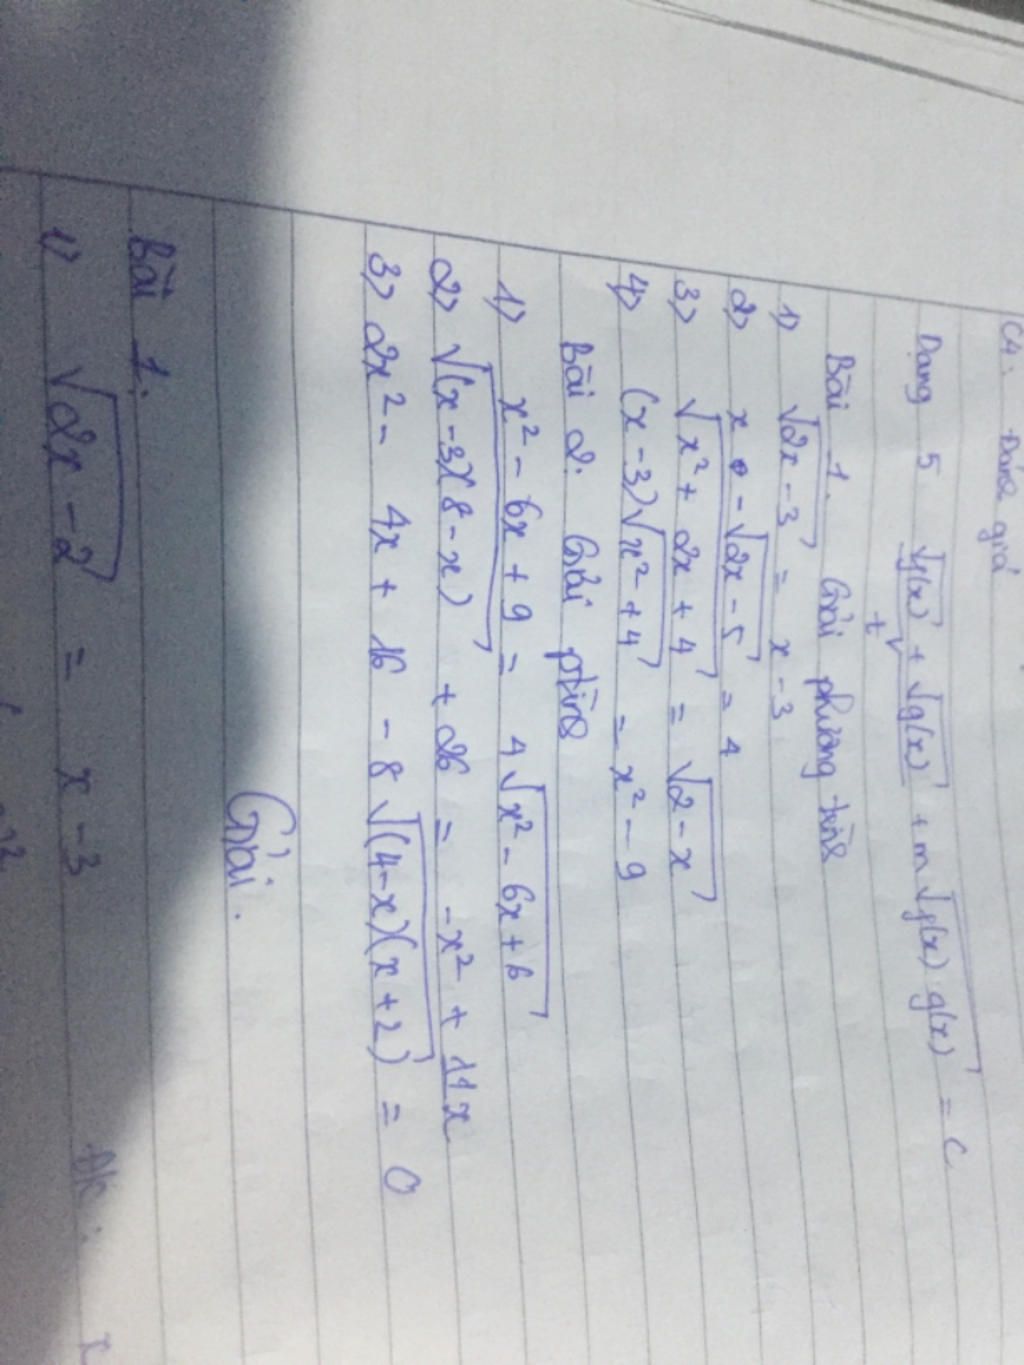 C4. Đánh giá
Dạng 5 √f(x) + √g(x) + m√f(x) g(x) = C
t
Bài 1. Giải phương trình
1) √2x-3 = x-3
2) x - √2x-5 = 4
3) √x²+2x+4 = √2-x
4) (x-3)√x²+4 = x²-9
Bài 2. Giải phtrình
1) x²-6x+9 = 4√x²-6x+6
2) √(x-3)(8-x) + 26 = -x²+11x
3) 2x²- 4x + 16 - 8√(4-x)(x+2) = 0
Giải.
Bài 1.
1) √2x-2 = x-3 ĐK: